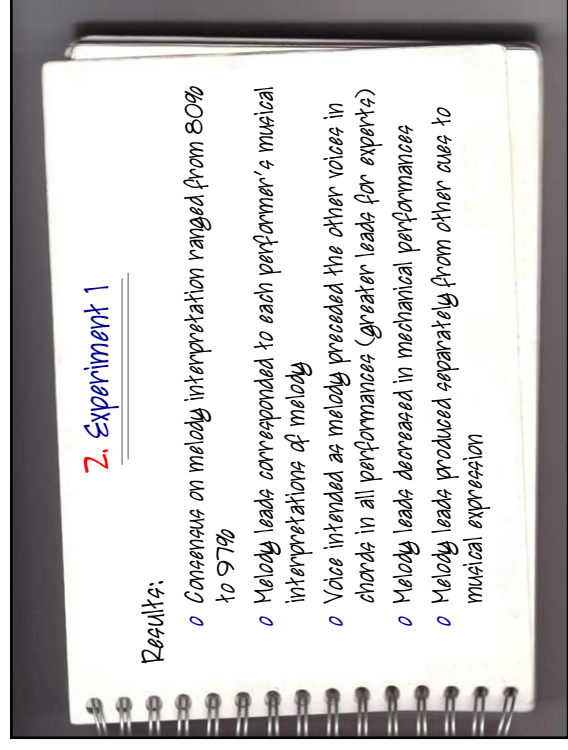 2. Experiment 1
Results:
o Consensus on melody interpretation ranged from 80%
to 97%
o Melody leads corresponded to each performer's musical
interpretations of melody
o Voice intended as melody preceded the other voices in
chords in all performances (greater leads for experts)
o Melody leads decreased in mechanical performances
o Melody leads produced separately from other cues to
musical expression